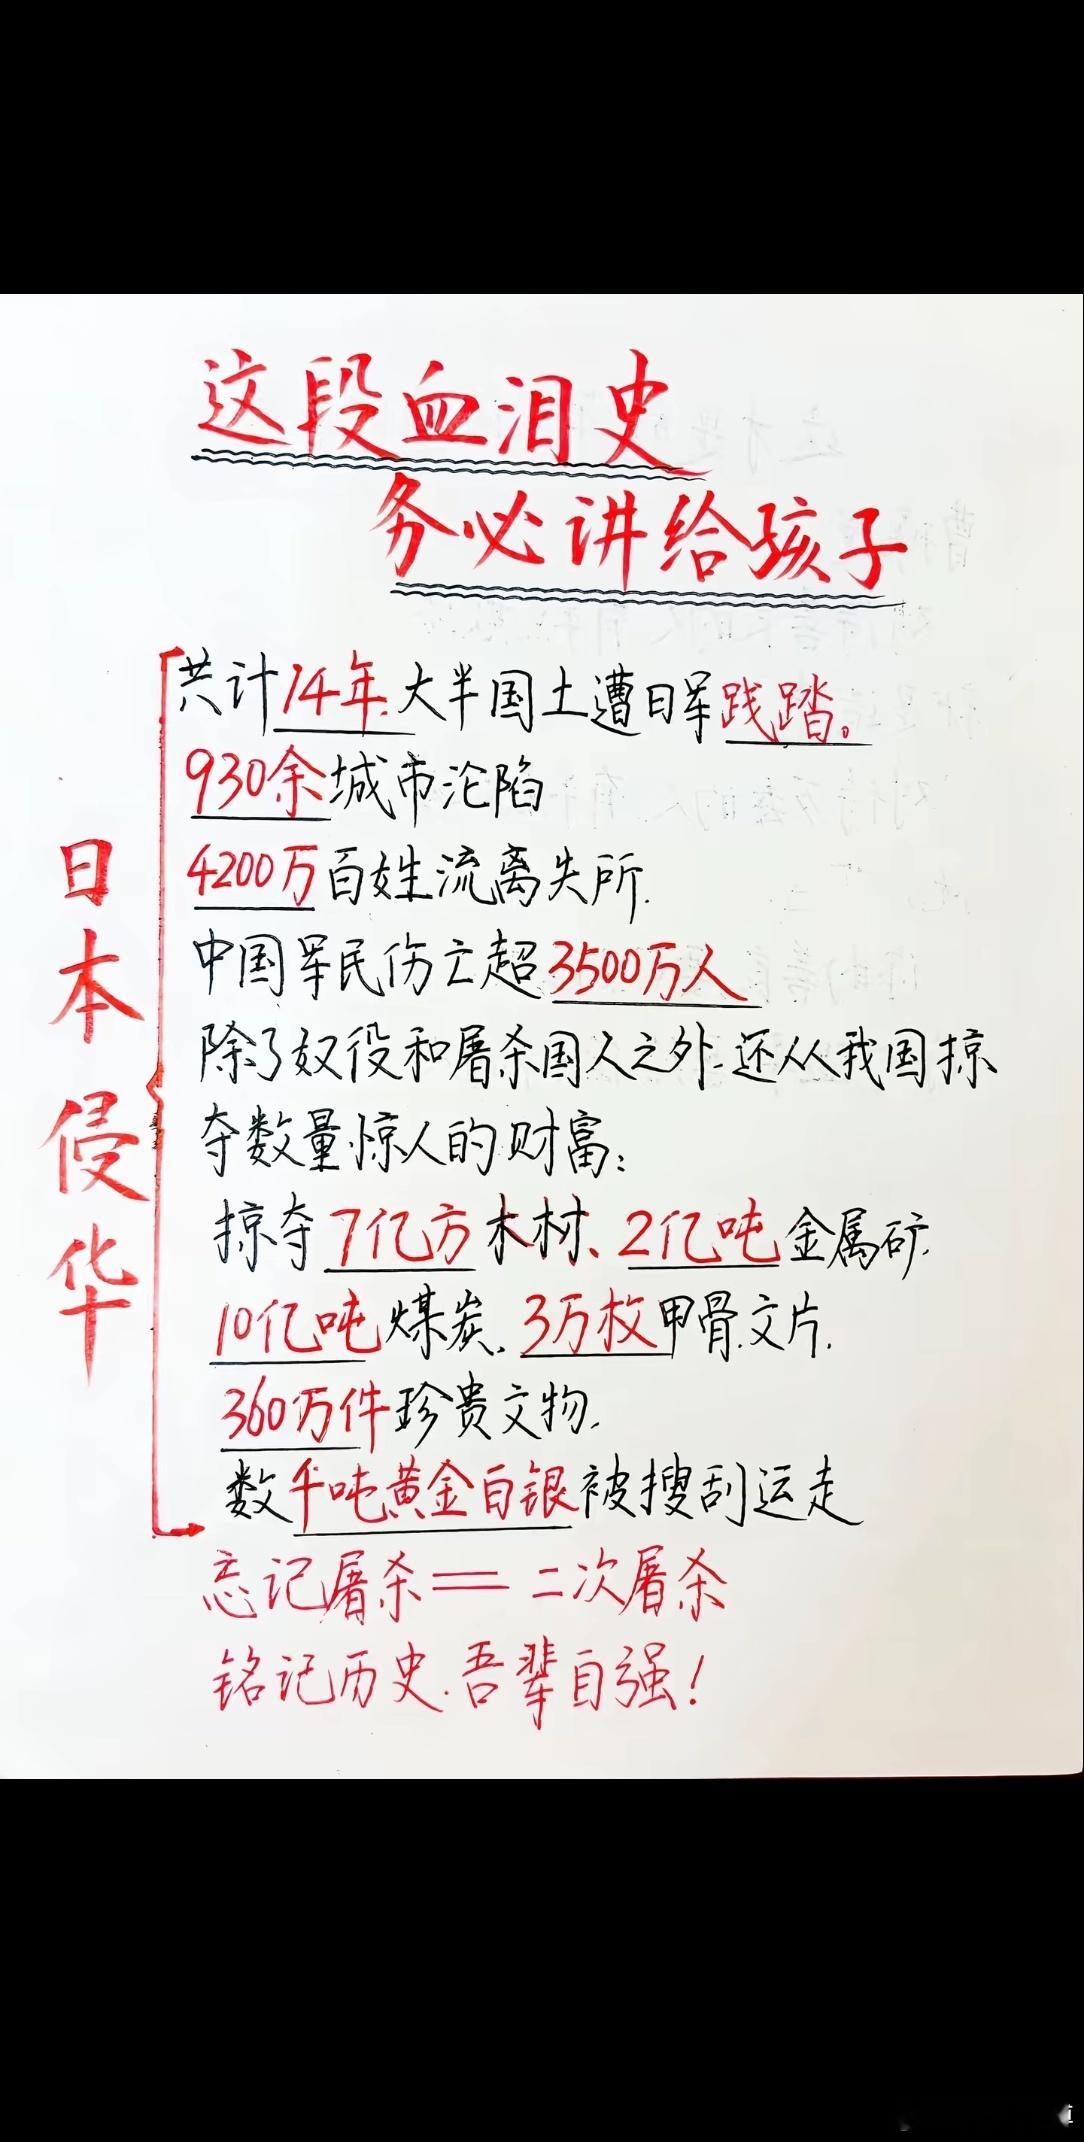 这段血泪史
务必讲给孩子
日本侵华
共计14年.大半国土遭日军践踏。
930余城市沦陷
4200万百姓流离失所.
中国军民伤亡超3500万人
除了奴役和屠杀国人之外.还从我国掠
夺数量惊人的财富:
掠夺7亿方木材、2亿吨金属矿.
10亿吨煤炭、3万枚甲骨文片.
360万件珍贵文物.
数千吨黄金白银被搜刮运走
忘记屠杀==二次屠杀
铭记历史.吾辈自强!